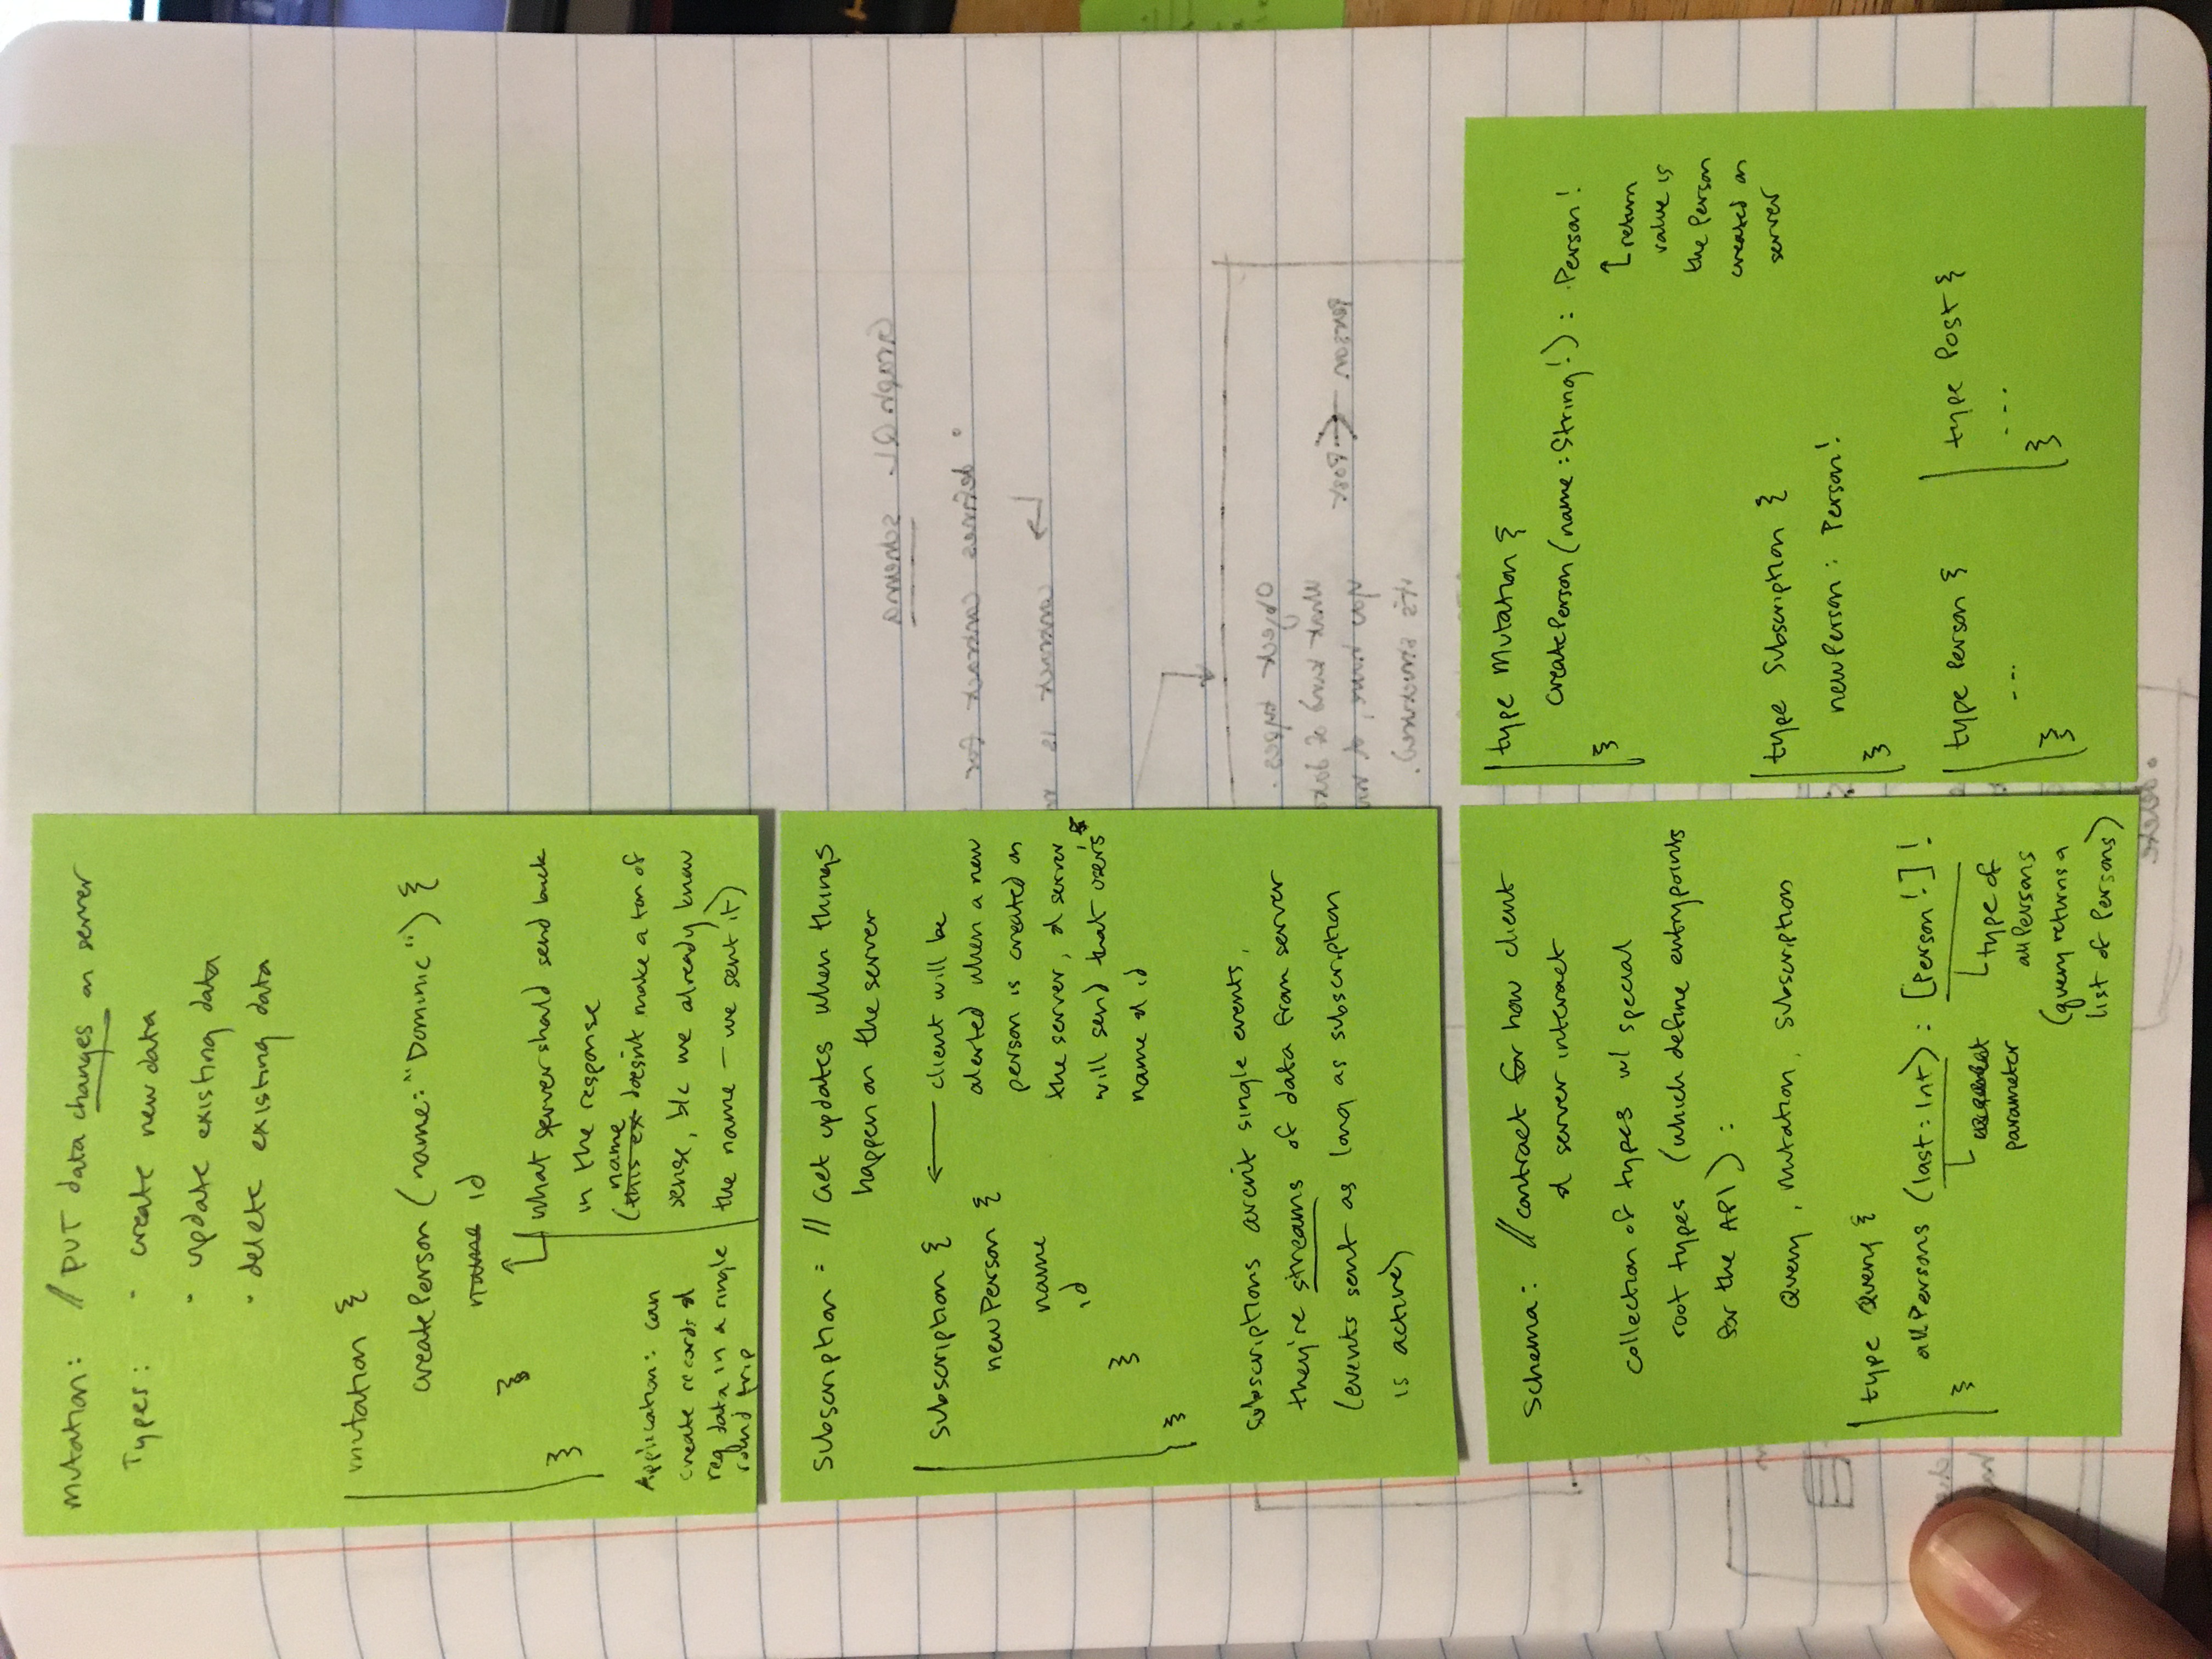 Mutation: // PUT data changes on server
Types: • create new data
• update existing data
• delete existing data
mutation {
createPerson (name: "Dominic") {
name id
}
}
what server should send back
in the response
name
(this ex doesn't make a ton of
sense, b/c we already know
the name — we sent it)
Application: can
create records &
req data in a single
round trip
Subscription: // Get updates when things
happen on the server
subscription {
newPerson {
name
id
}
}
← client will be
alerted when a new
person is created on
the server, & server
will send that user's
name & id
Subscriptions aren't single events,
they're streams of data from server
(events sent as long as subscription
is active)
Schema: // contract for how client
& server interact
collection of types w/ special
root types (which define entrypoints
for the API):
Query, Mutation, Subscription
type Query {
allPersons (last: Int): [Person!]!
}
parameter
type of
allPersons
(query returns a
list of Persons)
type Mutation {
createPerson (name: String!): Person!
}
return
value is
the Person
created on
server
type Subscription {
newPerson: Person!
}
type Person {
...
}
type Post {
...
}
GraphQL schema
• defines contract for
↳ contract is
Object types.
What kind of
you have, &
it's structured.
Person ←→ Post
• delete